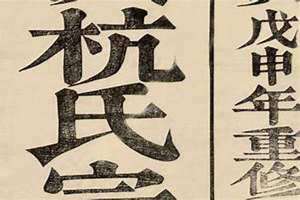 戊申年重修
杭氏